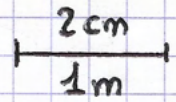 2cm
1m